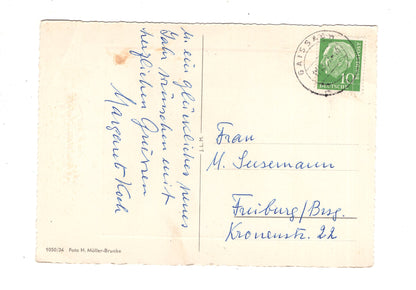 u. ein glückliches neues
Jahr wünschen mit
herzlichen Grüssen
Margaret Koch
1050/36 Foto H. Müller-Brunke
ILH
GAISSACH
10
DEUTSCHE
Frau
M. Seisemann
Freiburg/Brsg.
Kronenstr. 22